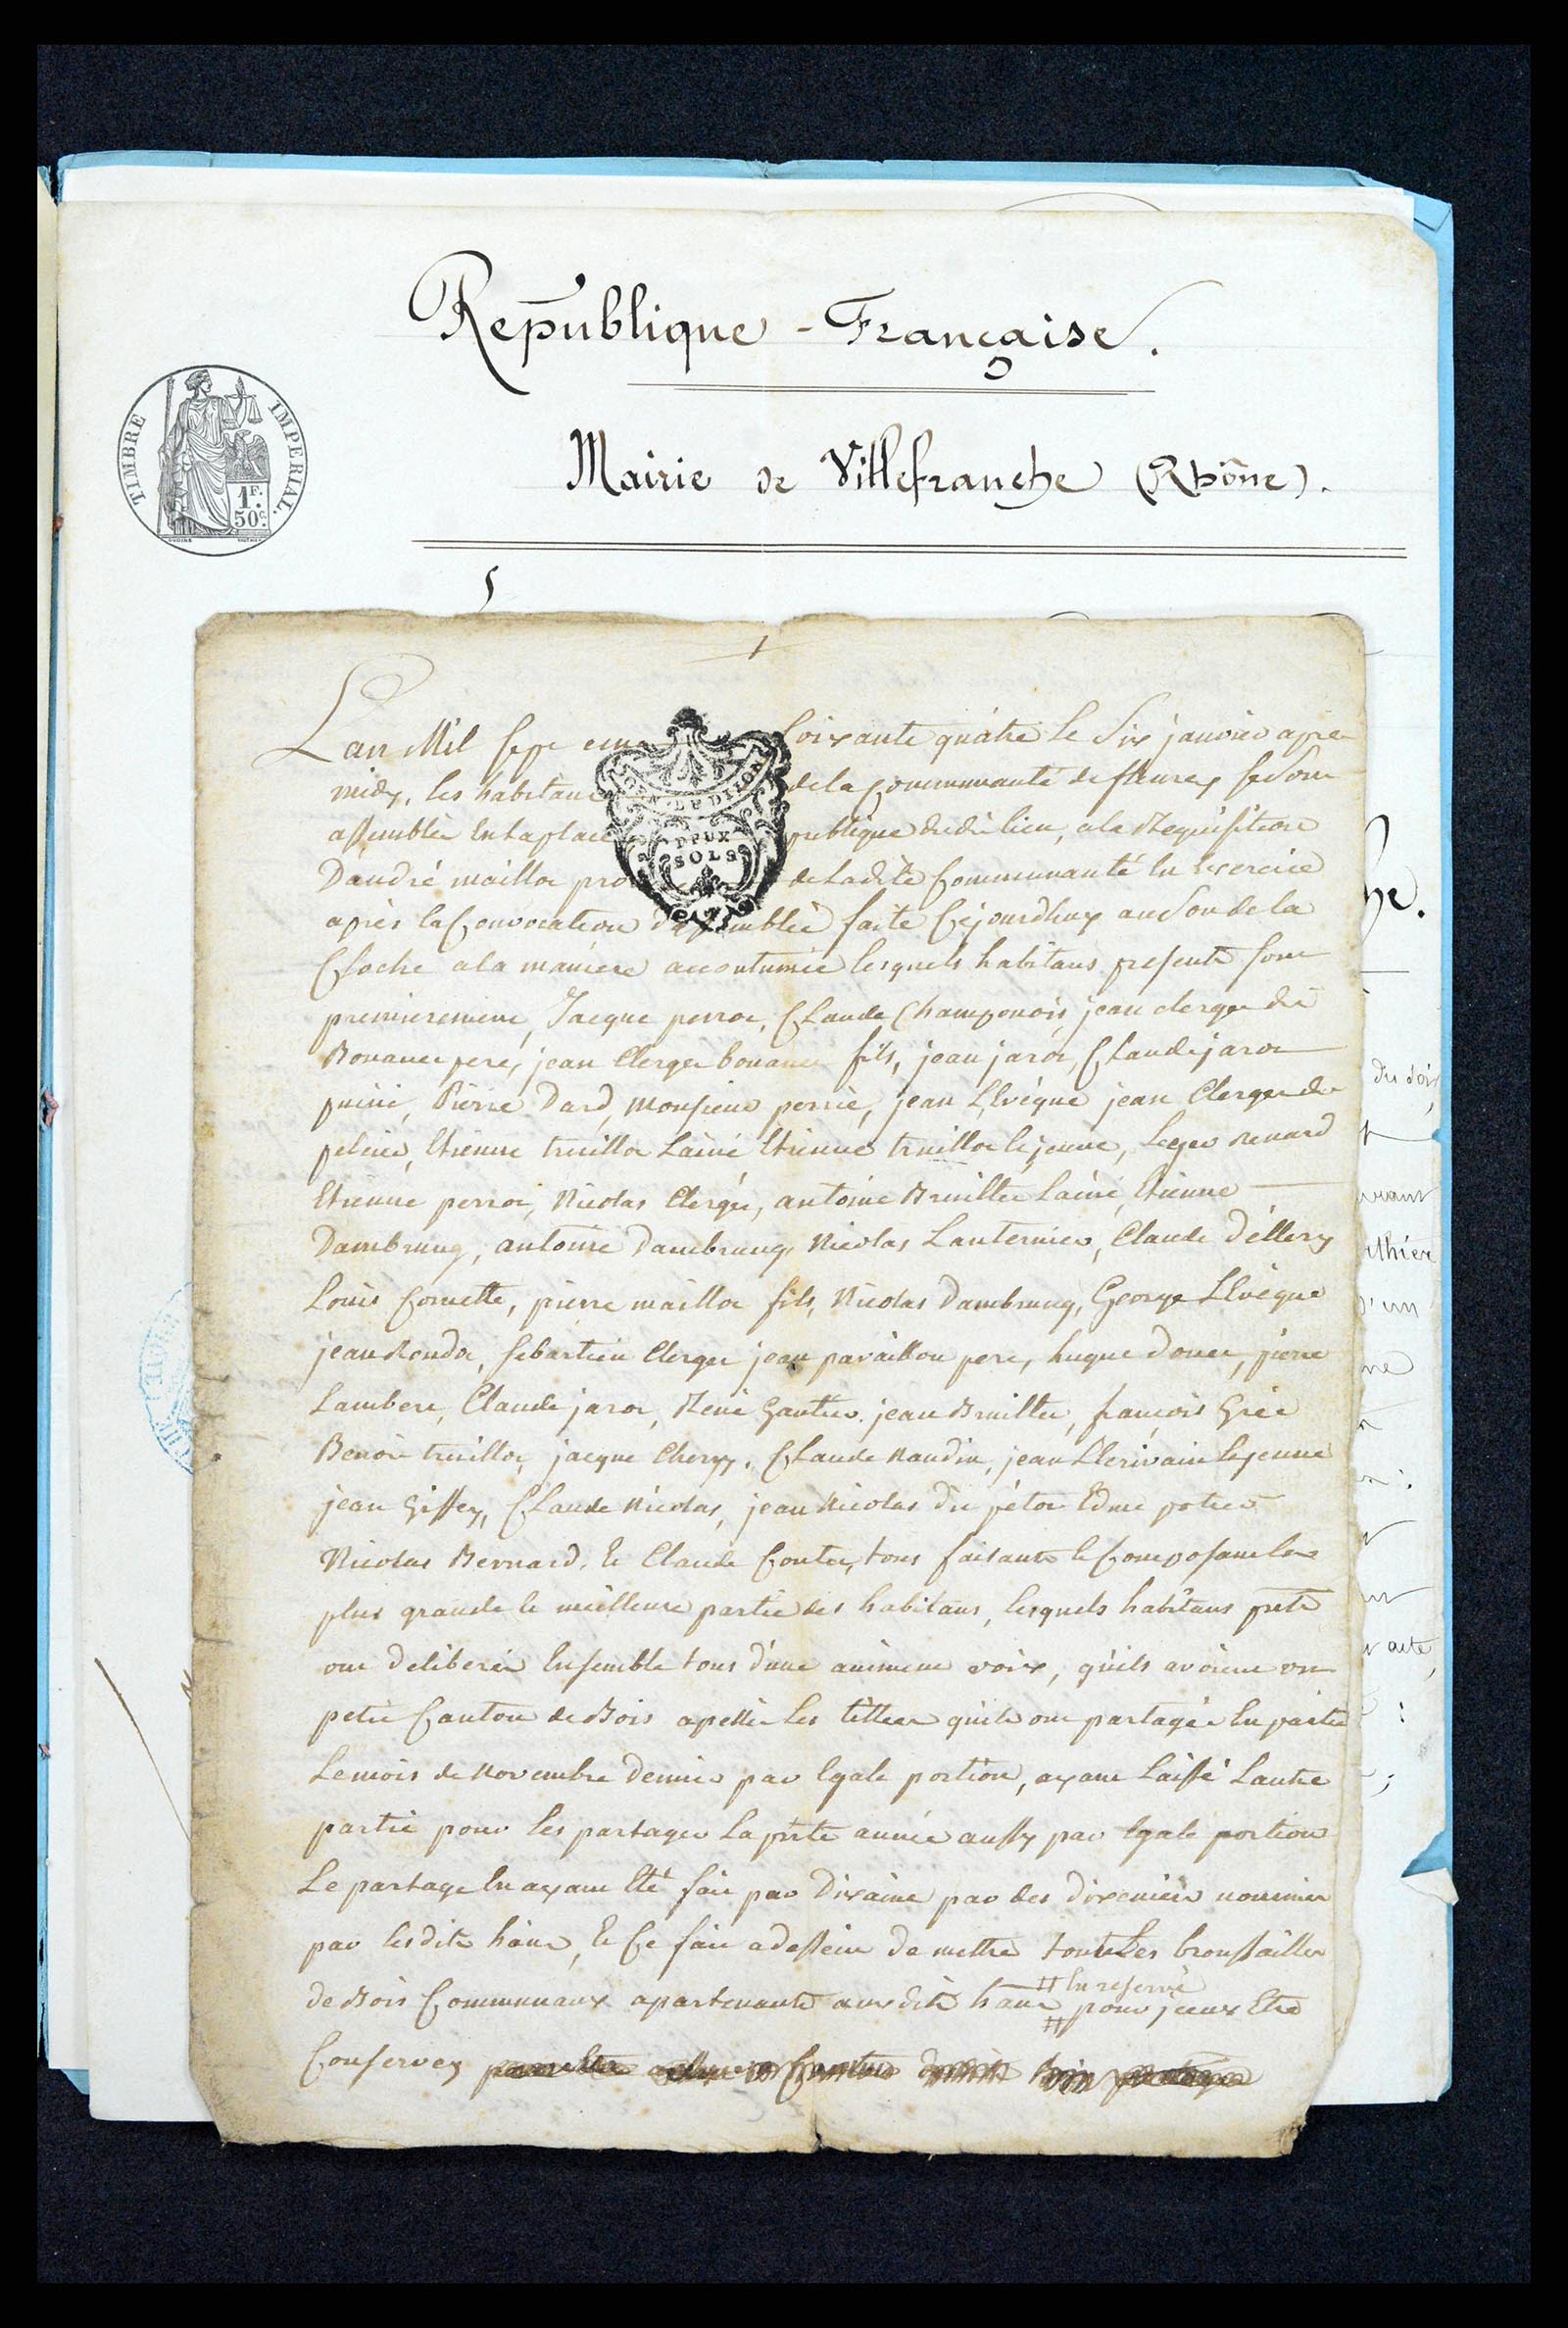 République - Française.
Mairie de Villefranche (Rhône).
TIMBRE IMPERIAL.
1F. 50c.
1
Lan Mil sept cent Soixante quatre le Six janvier apres
midy, les habitans de la Communauté de fleurey se sont
assemblée En la place publique dudit lieu, a la Requisition
Dandré maillot de Ladite Communauté En Exercice
DEUX
SOLS
après la Convocation d'assemblée faite Cejourdhuy au Son de la
Cloche a la maniere accoutumée lesquels habitans presents sont
premierement, Jacque perrot, Claude Champonois, jean clerget dit
Bonance pere, jean Clerget bonance fils, jean jarot, Claude jarot
puiné, Pierre Dard, Monsieur perrié, jean LEvêque jean Clerget dit
Etienne truillot Lainé Etienne truillot le jeune, Leger renard
Etienne perrot, Nicolas Clerget, antoine Bruillee Lainé, Etienne
Dambrung, antoine Dambrung, Nicolas Lanternier, Claude Déllery
Louis Cornette, pierre maillot fils, Nicolas Dambrung, George LEvêque
jean Rondot, Sebastien Clerget jean pavaillon pere, hugue Douee, pierre
Lambert, Claude jarot, René Gautier, jean Bruillee, françois Grée
Benoit truillot, jacque Chery, Claude Naudin, jean LEcrivain le jeune
jean Giffey, Claude Nicolas, jean Nicolas dit Edme potier
Nicolas Bernard, Et Claude Coutée, tous faisants et Composant la
plus grande et meilleure partie des habitans, lesquels habitans prets
ont deliberer Ensemble tous d'une voix, quils avoient un
petit Canton de Bois apellée les tillier quils ont partagée En partie
Le mois de Novembre dernier par Egale portion, ayant Laissé Lautre
partie pour les partager La prte année aussy par Egale portion
Le partage En ayant Eté fait par Dixaine par des dixeniers nommer
par lesdits hans, Et Ce fait a dessein de mettre toutes Les broussailles
de Bois Communaux apartenants ausdits hans # En reserve
# pour jceux Etre
Conservez